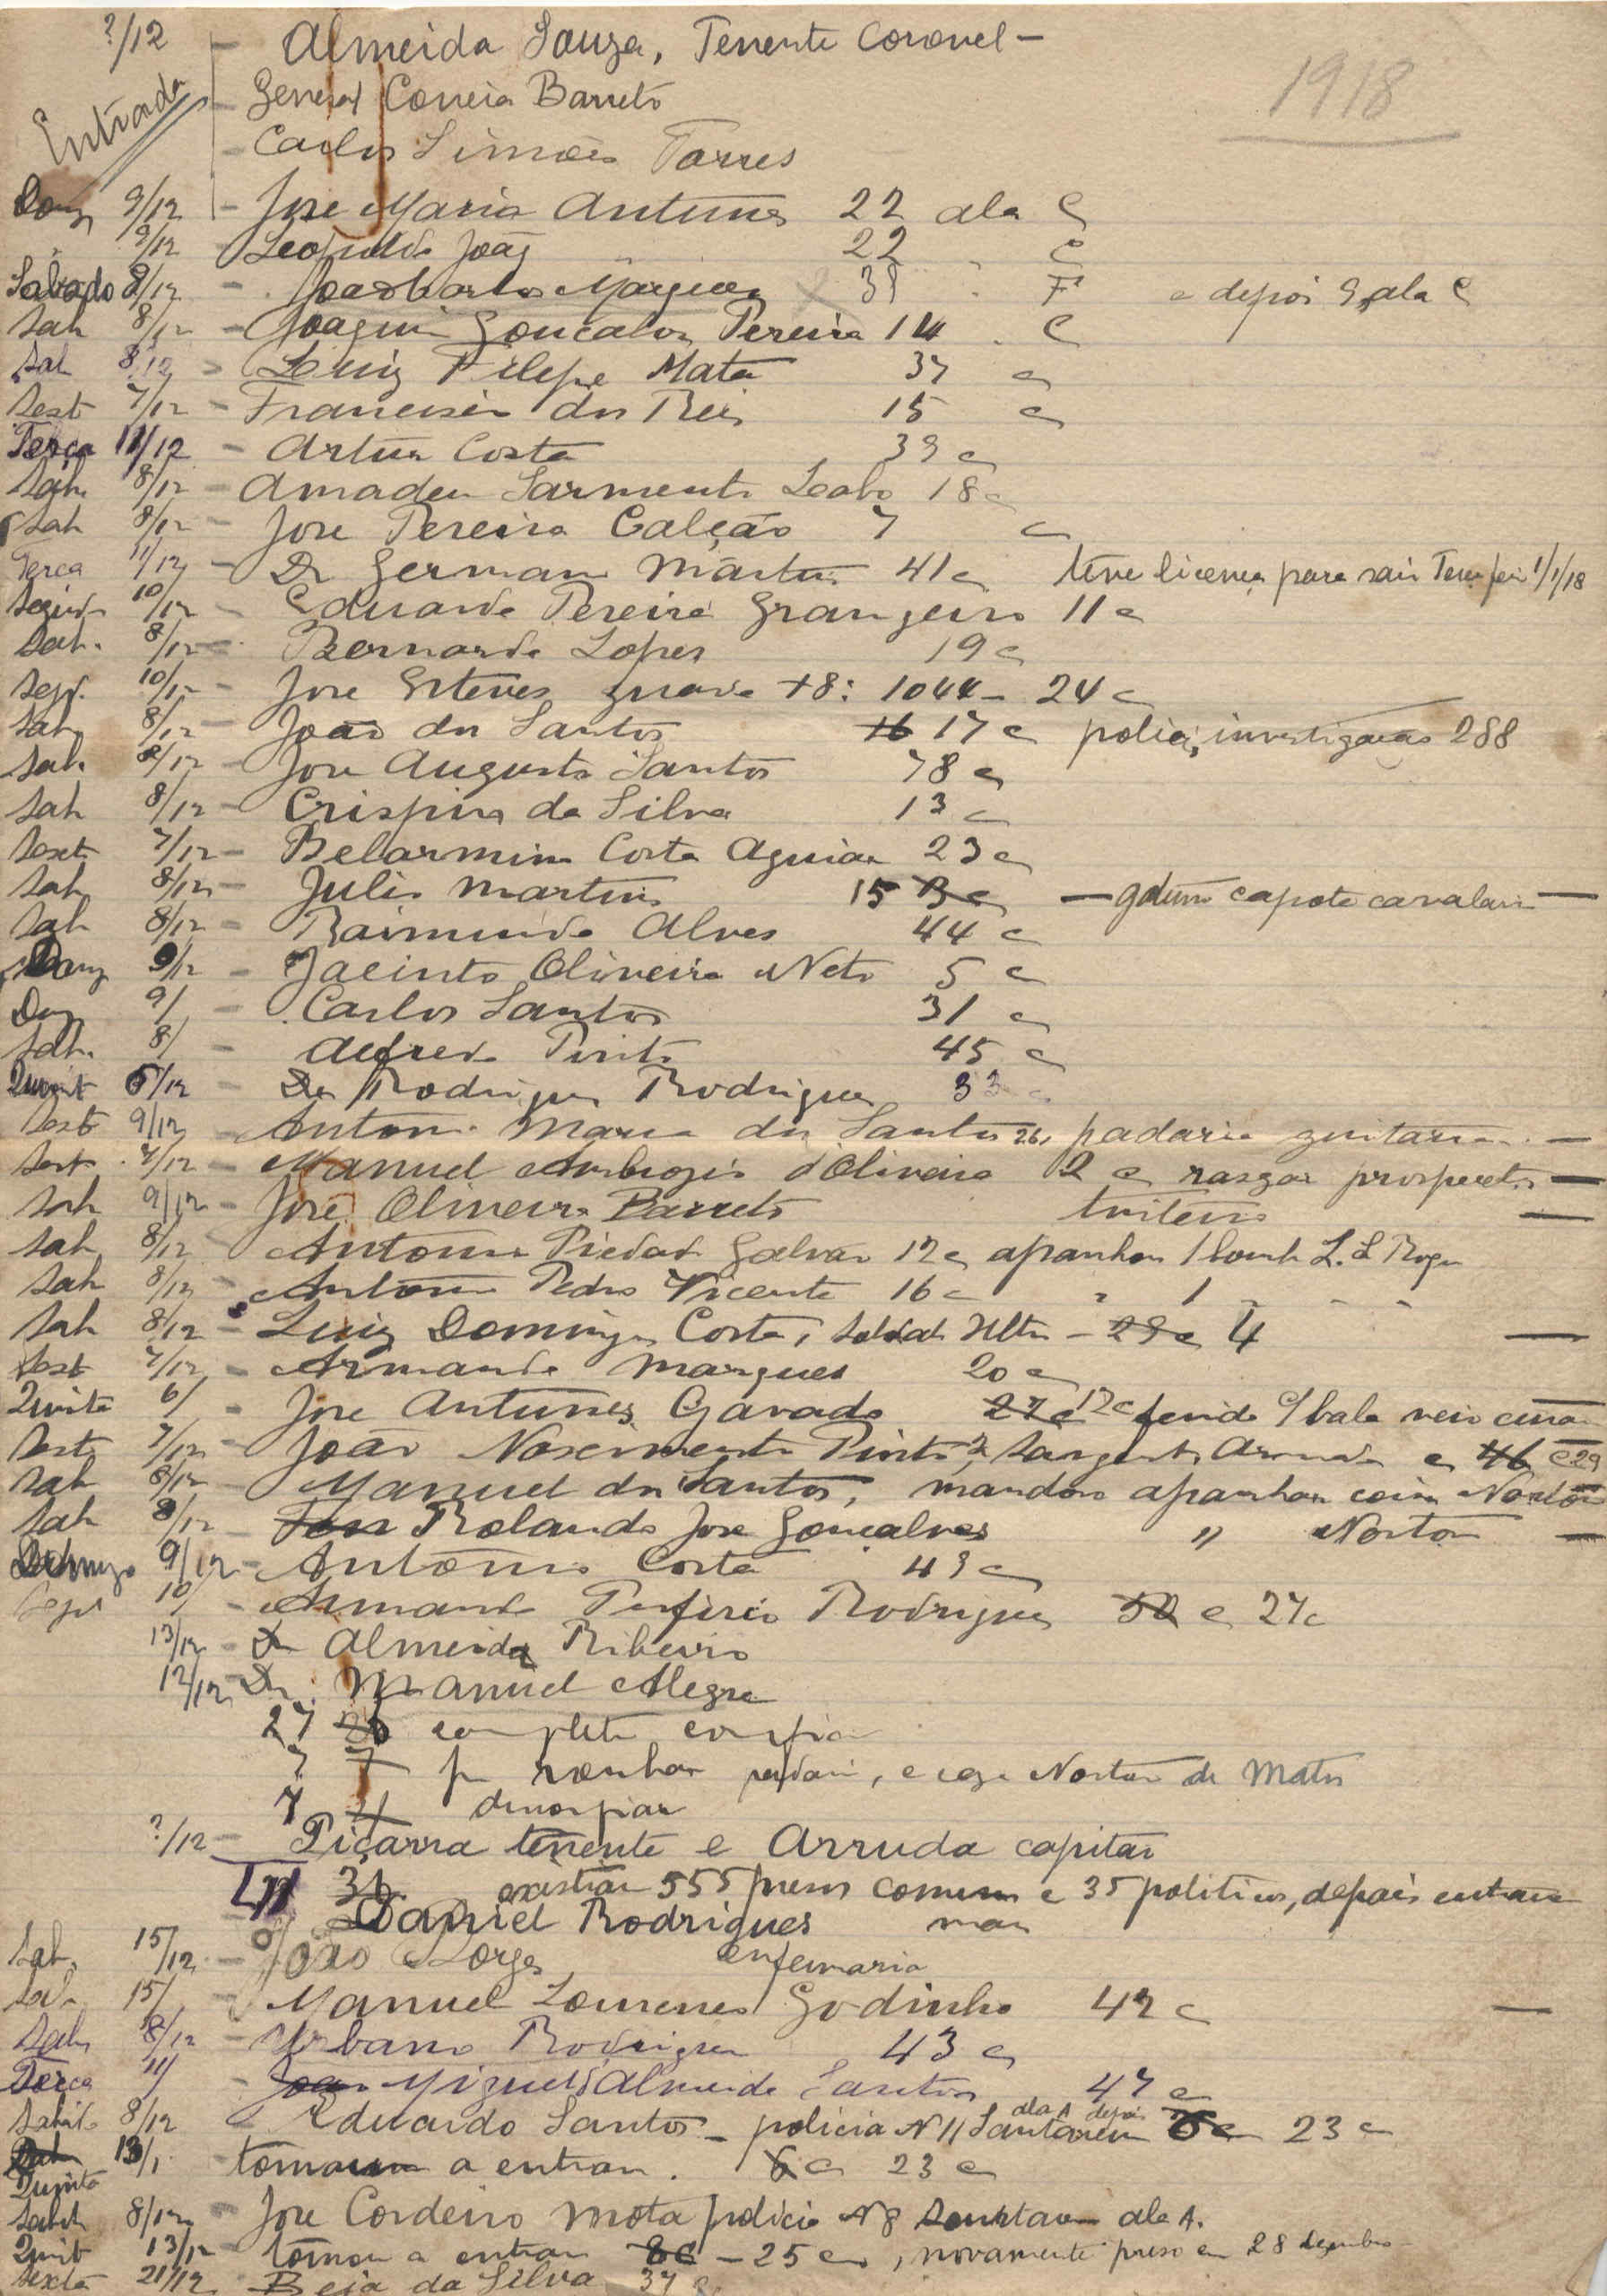 ?/12 - Almeida Souza, Tenente Coronel -
1918
Entrada
- General Correia Barreto
- Carlos Simões Torres
Dom 9/12 - Jose Maria Antunes 22 ala C
9/12 - Leopoldo João 22 " C
Sabado 8/12 - 39 " F e depois 9 ala C
Sab 8/12 - Joaquim Goncalves Pereira 14 . C
Sab 8/12 - Luiz Filipe Mata 37 C
Sext 7/12 - Francisco dos Reis 15 C
Terça 11/12 - Artur Costa 39 C
Sab. 8/12 - Amadeu Sarmento Lobo 18 C
Sab 8/12 - Jose Pereira Galção 7 C
Terca 11/12 - Dr German Martins 41 C teve licença para sair Terça feira 1/1/18
Segund 10/12 - Eduardo Pereira Grangeiro 11 C
Sab. 8/12 - Bernardo Lopes 19 C
Segd. 10/12 - Jose Esteves guarda +8: 1044 - 24 C
Sab 8/12 - João dos Santos 16 17 C policia investigação 288
Sab. 8/12 - Jose Augusto Santos 78 C
Sab 8/12 - Crispim da Silva 13 C
Sext 7/12 - Belarmino Costa Aguiar 23 C
Sab 8/12 - Julio Martins 15 3 C - gatuno capote cavalaria -
Sab 8/12 - Raimundo Alves 44 C
Dom 9/12 - Jacinto Oliveira Neto 5 C
Dom 9/ - Carlos Santos 31 C
Sab. 8/ - Alfredo Pinto 45 C
Quint 6/12 - Dr Rodrigues Rodrigues 33 C
Sext 9/12 - Antonio Maria dos Santos 26, padaria -
Sext 7/12 - Manuel Ambrozio d'Oliveira 2 C rasgar prospectos -
Sab 9/12 - José Oliveira Barreto -
Sab 8/12 Antonio Piedade Galvão 12 C apanhou 1 bomb L. d Roga
Sab 8/12 - Antonio Pedro Vicente 16 C " 1 " " "
Sab 8/12 - Luiz Domingos Costa, Soldado - 29 C 4 -
Sext 7/12 - Armando Marques 20 C
Quinta 6/ - Jose Antunes Gavado 27 C 12 C ferido c/ bala
Sext 7/12 - João Nascimento Pinto 2º Sargento Armada C 46 C 29
Sab 8/12 - Manuel dos Santos, mandou apanhar Norton
Sab 8/12 - Rolando Jose Gonçalves " Norton -
Domingo 9/12 - Antonio Costa 49 C
Segd 10/ - Armando Porfirio Rodrigues 50 C 27 C
13/12 - Dr Almeida Ribeiro
12/12 - Dr. Manuel Alegre
27 26 completa
7 7 p roubar padaria, e casa Norton de Matos
7 4 desconfiar
?/12 - Piçarra tenente e Arruda capitão
31 existiam 555 presos comuns e 35 politicos, depois entraram
Daniel Rodrigues
Sab. 15/12 - João Borges enfermaria
Sab 15/ - Manuel Lourenço Godinho 42 C -
Sab 8/12 - Urbano Rodrigues 43 C
Terça 11/ - Joao Miguel Almeida Santos 47 C
Sabado 8/12 - Eduardo Santos - policia Nº 11 Santarem ala A depois 6 C 23 C
Sab Quinta 13/1 - tornaram a entrar. 6 C 23 C
Sabado 8/12 - Jose Cordeiro Mota policia Nº 8 Santarem ala A.
Quint 13/12 - tornou a entrar 8 C - 25 C, novamente preso em 28 dezembro
Sexta 21/12 - Beja da Silva 37 C